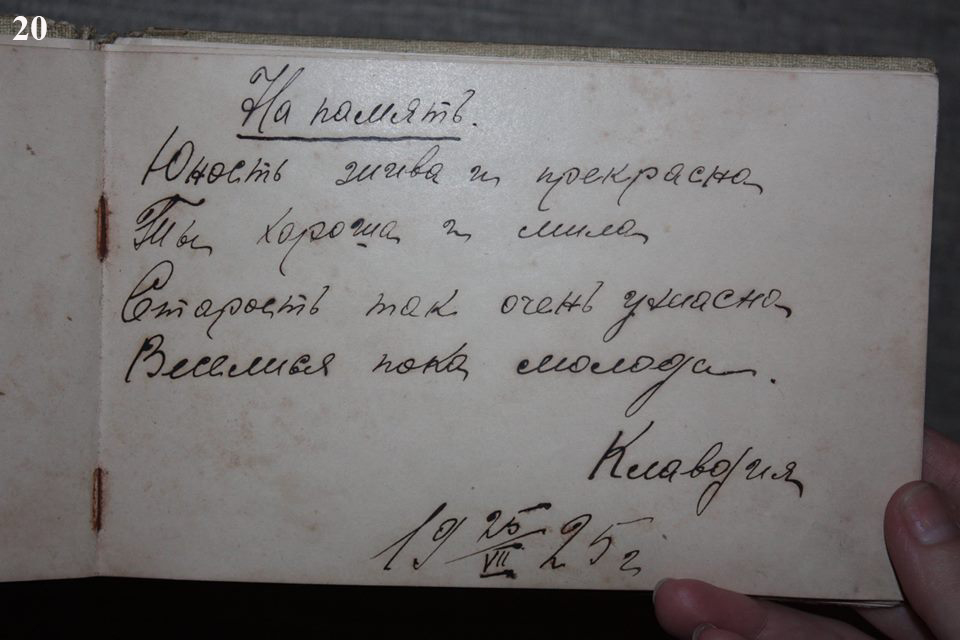 20
На память.
Юность жива и прекрасна
Ты хороша и мила
Старость так очень ужасна
Веселися пока молода.
Клавдия
19 25/VII 25 г